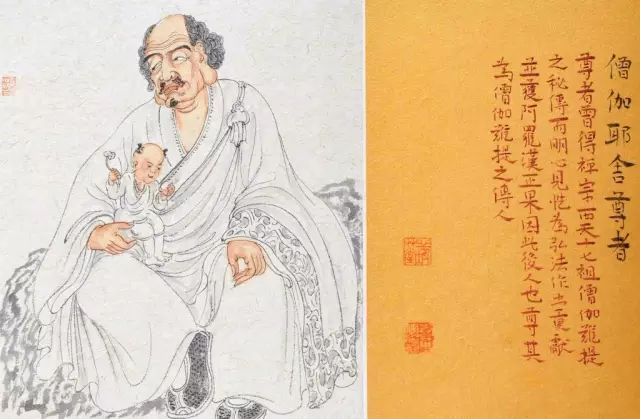 僧伽耶舍尊者
尊者曾得禪宗西天十七祖僧伽難提
之秘傳而明心見性為弘法作出貢獻
並獲阿羅漢正果因此後人也尊其
為僧伽難提之傳人